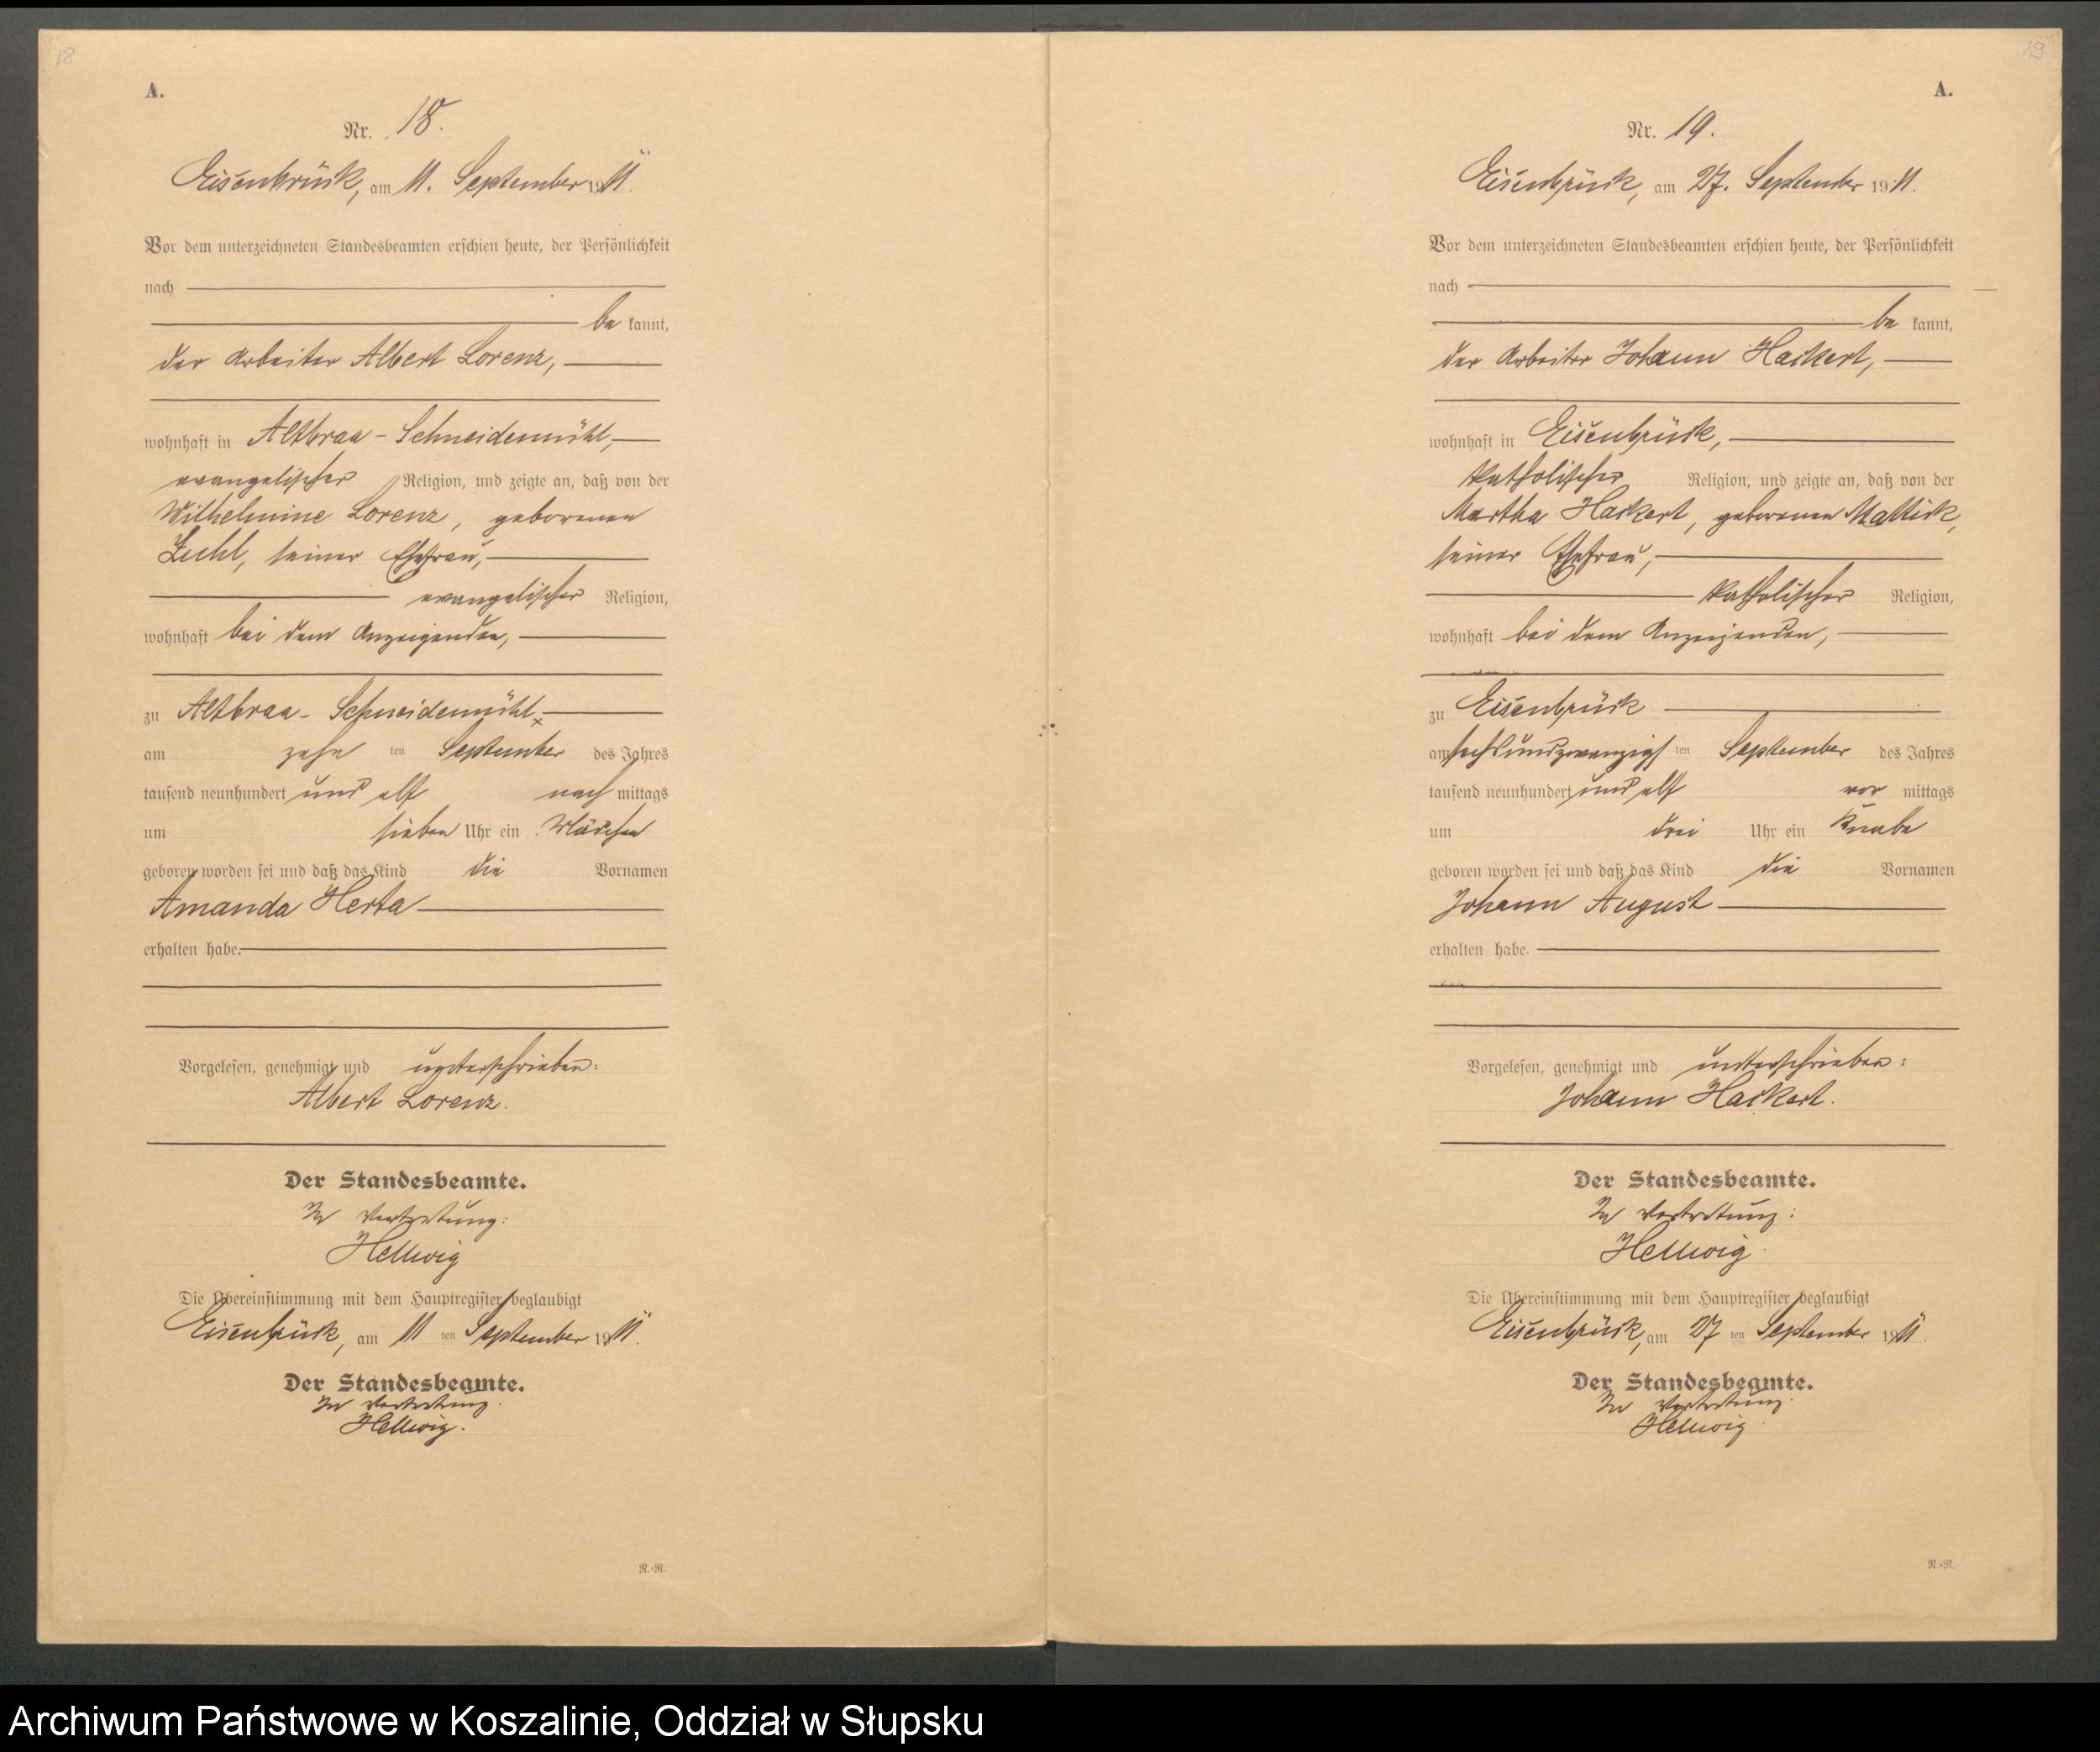 18
A.
Nr. 18.
Eisenbrück, am 11. September 1911.
Vor dem unterzeichneten Standesbeamten erschien heute, der Persönlichkeit
nach
be kannt,
der Arbeiter Albert Lorenz,
wohnhaft in Altbraa-Schneidemühl,
evangelischer Religion, und zeigte an, daß von der
Wilhelmine Lorenz, geborenen
seiner Ehefrau,
evangelischer Religion,
wohnhaft bei dem Anzeigenden,
zu Altbraa-Schneidemühl
am zehn ten September des Jahres
tausend neunhundert und elf nach mittags
um sieben Uhr ein Mädchen
geboren worden sei und daß das Kind die Vornamen
Amanda Herta
erhalten habe.
Vorgelesen, genehmigt und unterschrieben:
Albert Lorenz.
Der Standesbeamte.
In Vertretung:
Hellwig
Die Übereinstimmung mit dem Hauptregister beglaubigt
Eisenbrück, am 11 ten September 1911.
Der Standesbeamte.
In Vertretung.
Hellwig.
R.-R.
19
A.
Nr. 19.
Eisenbrück, am 27. September 1911.
Vor dem unterzeichneten Standesbeamten erschien heute, der Persönlichkeit
nach
be kannt,
der Arbeiter Johann Hackert,
wohnhaft in Eisenbrück,
katholischer Religion, und zeigte an, daß von der
Martha Hackert, geborenen Mallick,
seiner Ehefrau,
katholischer Religion,
wohnhaft bei dem Anzeigenden,
zu Eisenbrück
am sechsundzwanzigs ten September des Jahres
tausend neunhundert und elf vor mittags
um drei Uhr ein Knabe
geboren worden sei und daß das Kind die Vornamen
Johann August
erhalten habe.
Vorgelesen, genehmigt und unterschrieben:
Johann Hackert.
Der Standesbeamte.
In Vertretung:
Hellwig.
Die Übereinstimmung mit dem Hauptregister beglaubigt
Eisenbrück, am 27 ten September 1911.
Der Standesbeamte.
In Vertretung.
Hellwig
R.-R.
Archiwum Państwowe w Koszalinie, Oddział w Słupsku